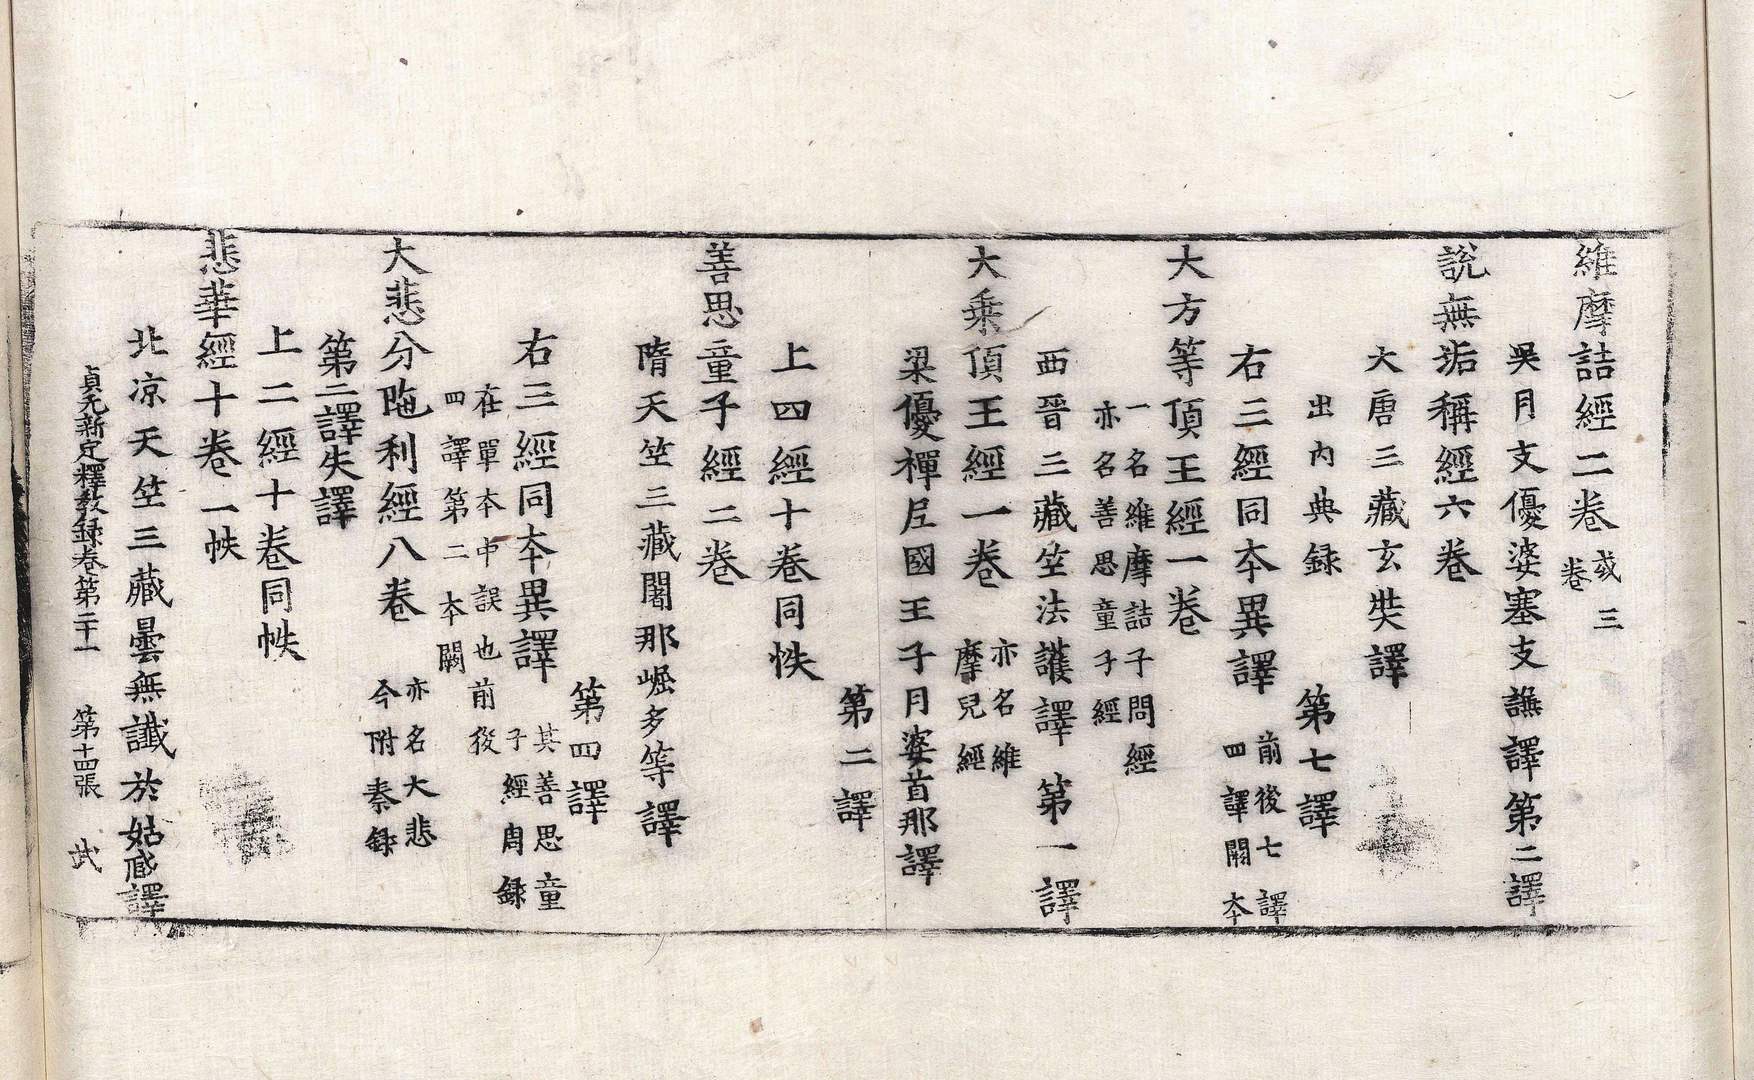 維摩詰經二卷 或三卷
吳月支優婆塞支謙譯第二譯
說無垢稱經六卷
大唐三藏玄奘譯
出內典録
第七譯
右三經同夲異譯 前後七譯四譯闕夲
大方等頂王經一卷
一名維摩詰子問經
亦名善思童子經
西晉三藏竺法護譯 第一譯
大乘頂王經一卷 亦名維摩兒經
梁優禪尼國王子月婆首那譯
第二譯
上四經十卷同帙
善思童子經二卷
隋天竺三藏闍那崛多等譯
第四譯
右三經同夲異譯 其善思童子經周録
在單本中誤也前後
四譯第二夲闕
大悲分陁利經八卷 亦名大悲今附秦録
第二譯失譯
上二經十卷同帙
悲華經十卷一帙
北凉天竺三藏曇無讖於姑臧譯
貞元新定釋教録卷第二十一 第十四張 式